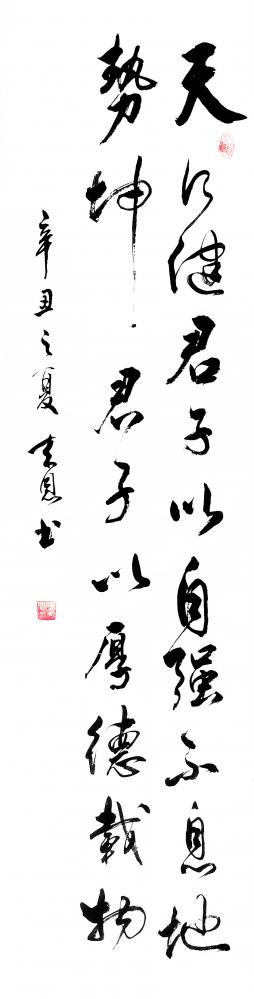 天行健君子以自强不息地
勢坤君子以厚德載物
辛丑之夏志恩书